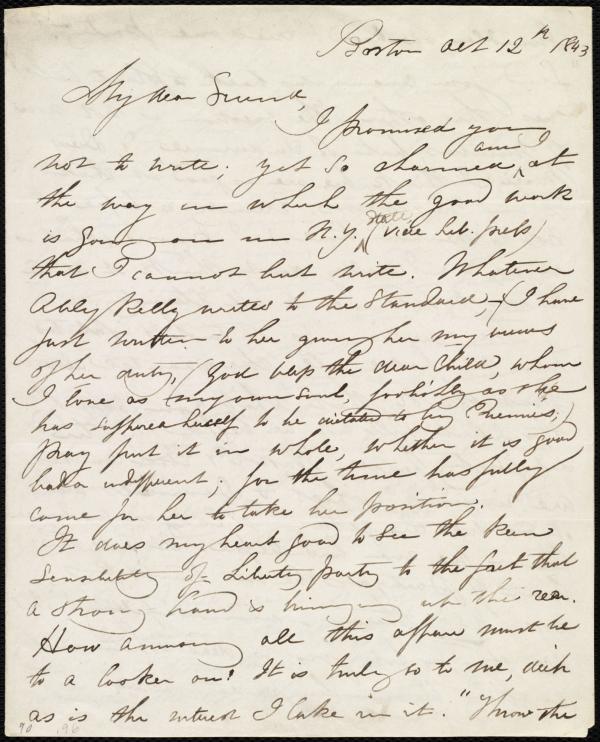 Boston Oct 12th 1843
My dear Friend,
I promised you
not to write; yet so charmed am I at
the way in which the good work
is going on in N.Y. State (vide Lib. press)
that I cannot but write. Whatever
Abby Kelly writes to the Standard, – (I have
just written to her giving her my views
of her duty, (God bless the dear child, whom
I love as my own soul, foolishly as she
has suffered herself to be dictated to by Enemies;)
pray put it in whole, whether it is good
bad or indifferent; for the time has fully
come for her to take her position.
It does my heart good to see the keen
sensibility of Liberty party to the fact that
a strong hand is bringing up the rear.
How amusing all this affair must be
to a looker on! It is truly so to me, deep
as is the interest I take in it. "Throw the
90 .96